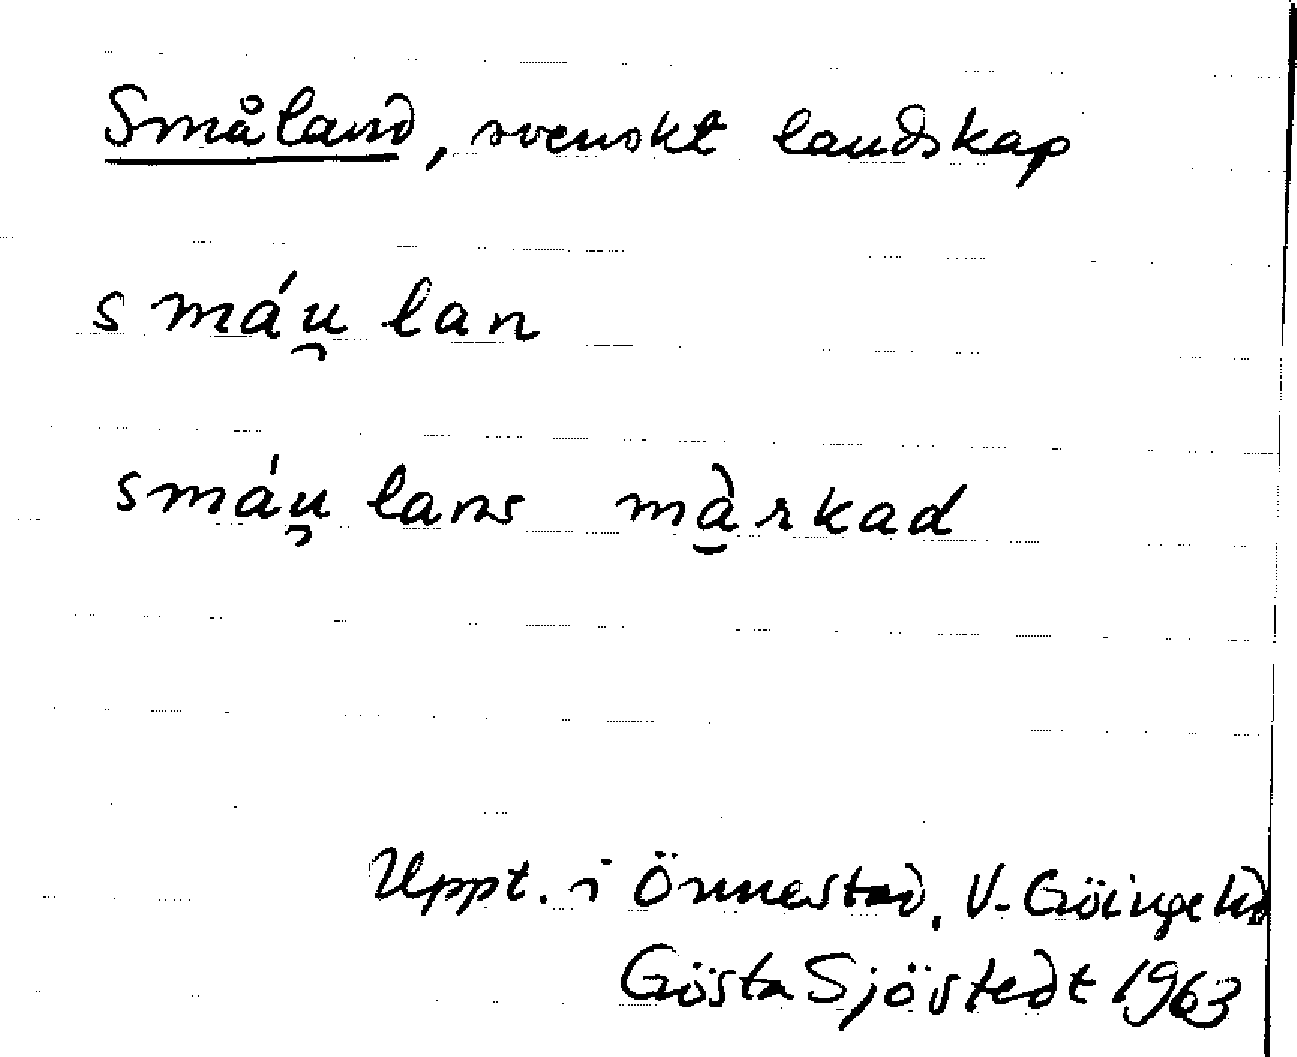 Småland, svenskt landskap
smáu̯ lan
smáu̯ lans mà̱rkad
Uppt. i Önnestad, V. Göinge hd
Gösta Sjöstedt 1963